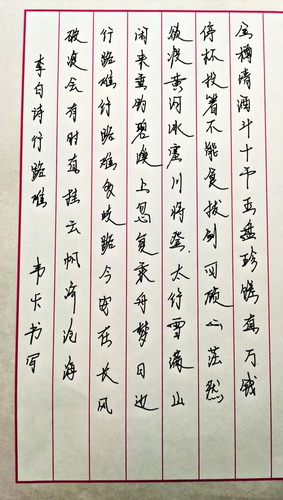 金樽清酒斗十千玉盘珍馐直万钱
停杯投箸不能食拔剑四顾心茫然
欲渡黄河冰塞川将登太行雪满山
闲来垂钓碧溪上忽复乘舟梦日边
行路难行路难多歧路今安在长风
破浪会有时直挂云帆济沧海
李白诗行路难 韦书写